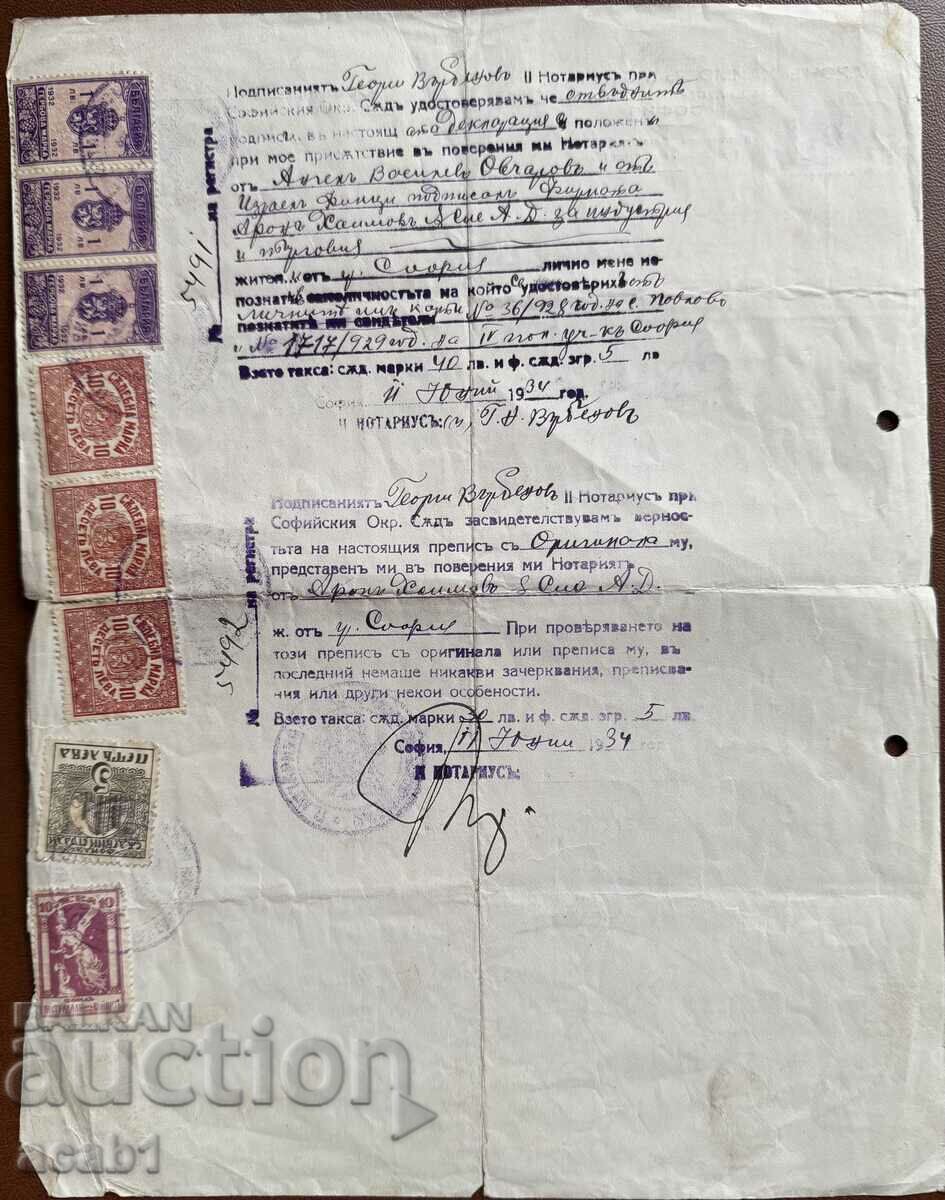 Подписаниятъ Георги Върбеновъ II Нотариусъ при
Софийския Окр. Сѫдъ удостоверявамъ че отъ
подписи, въ настоящ ата Декларация положени
при мое присѫтствие въ поверения ми Нотариятъ
отъ Ангелъ Василевъ Овчаровъ и отъ
Израел Финци подписалъ фирмата
Аронъ Хаимовъ & Сие А. Д. за индустрия
и търговия
жители отъ гр. София лично мене не-
познати самоличностьта на който удостовериха отъ
личните имъ карти № 36/928 год. на с. Павлово
познатите ми свидетели
и № 1717/929 год. на IV пол. уч-къ София
Взето такса: сѫд. марки 40 лв. и ф. сѫд. згр. 5 лв
София, 11 Юний 1934 год.
II НОТАРИУСЪ: (п) Г. Върбеновъ
№ на регистра 5491
Подписаниятъ Георги Върбеновъ II Нотариусъ при
Софийския Окр. Сѫдъ засвидетелствувамъ вернос-
тьта на настоящия преписъ съ Оригинала му,
представен ми въ поверения ми Нотариятъ
отъ Аронъ Хаимовъ & Сие А. Д.
ж. отъ гр. София При проверяването на
този преписъ съ оригинала или преписа му, въ
последний немаше никакви зачерквания, преписва-
ния или други некои особености.
Взето такса: сѫд. марки 30 лв. и ф. сѫд. згр. 5 лв
София, 11 Юний 1934 год
II НОТАРИУСЪ:
№ на регистра 5492
БЪЛГАРИЯ
1 лв 1
1932 ГЕРБОВА МАРКА 1932
БЪЛГАРИЯ
1 лв 1
1932 ГЕРБОВА МАРКА 1932
БЪЛГАРИЯ
1 лв 1
1932 ГЕРБОВА МАРКА 1932
СѪДЕБНА МАРКА
10 10
ДЕСЕТЬ ЛЕВА
СѪДЕБНА МАРКА
10 10
ДЕСЕТЬ ЛЕВА
СѪДЕБНА МАРКА
10 10
ДЕСЕТЬ ЛЕВА
ФОНДЪ
СѪДЕБНИ СГРАДИ
5
ПЕТЬ ЛЕВА
10 10
BALKAN
auction
acab1